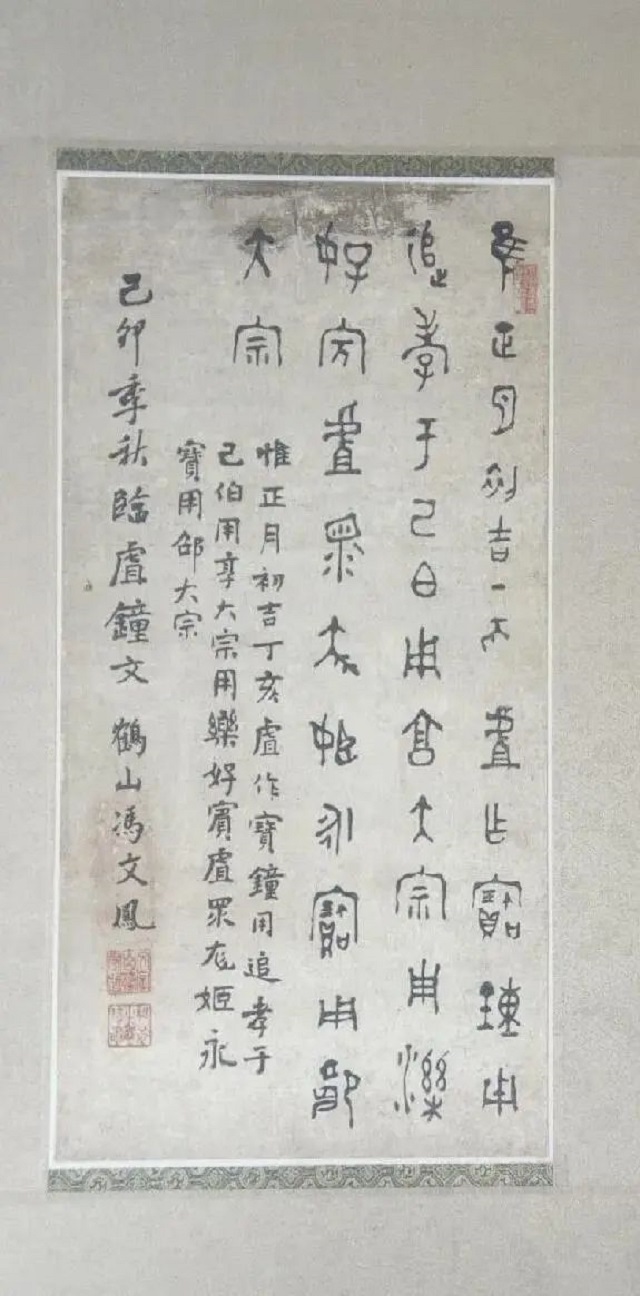 隹正月初吉丁亥虘乍寶鐘用
追孝于己白用享大宗用濼
好賓虘眔姬永寶用邵
大宗
惟正月初吉丁亥虘作寶鐘用追孝于
己伯用享大宗用好賓虘眔姬永
寶用邵大宗
己卯季秋臨虘鐘文 鶴山馮文鳳